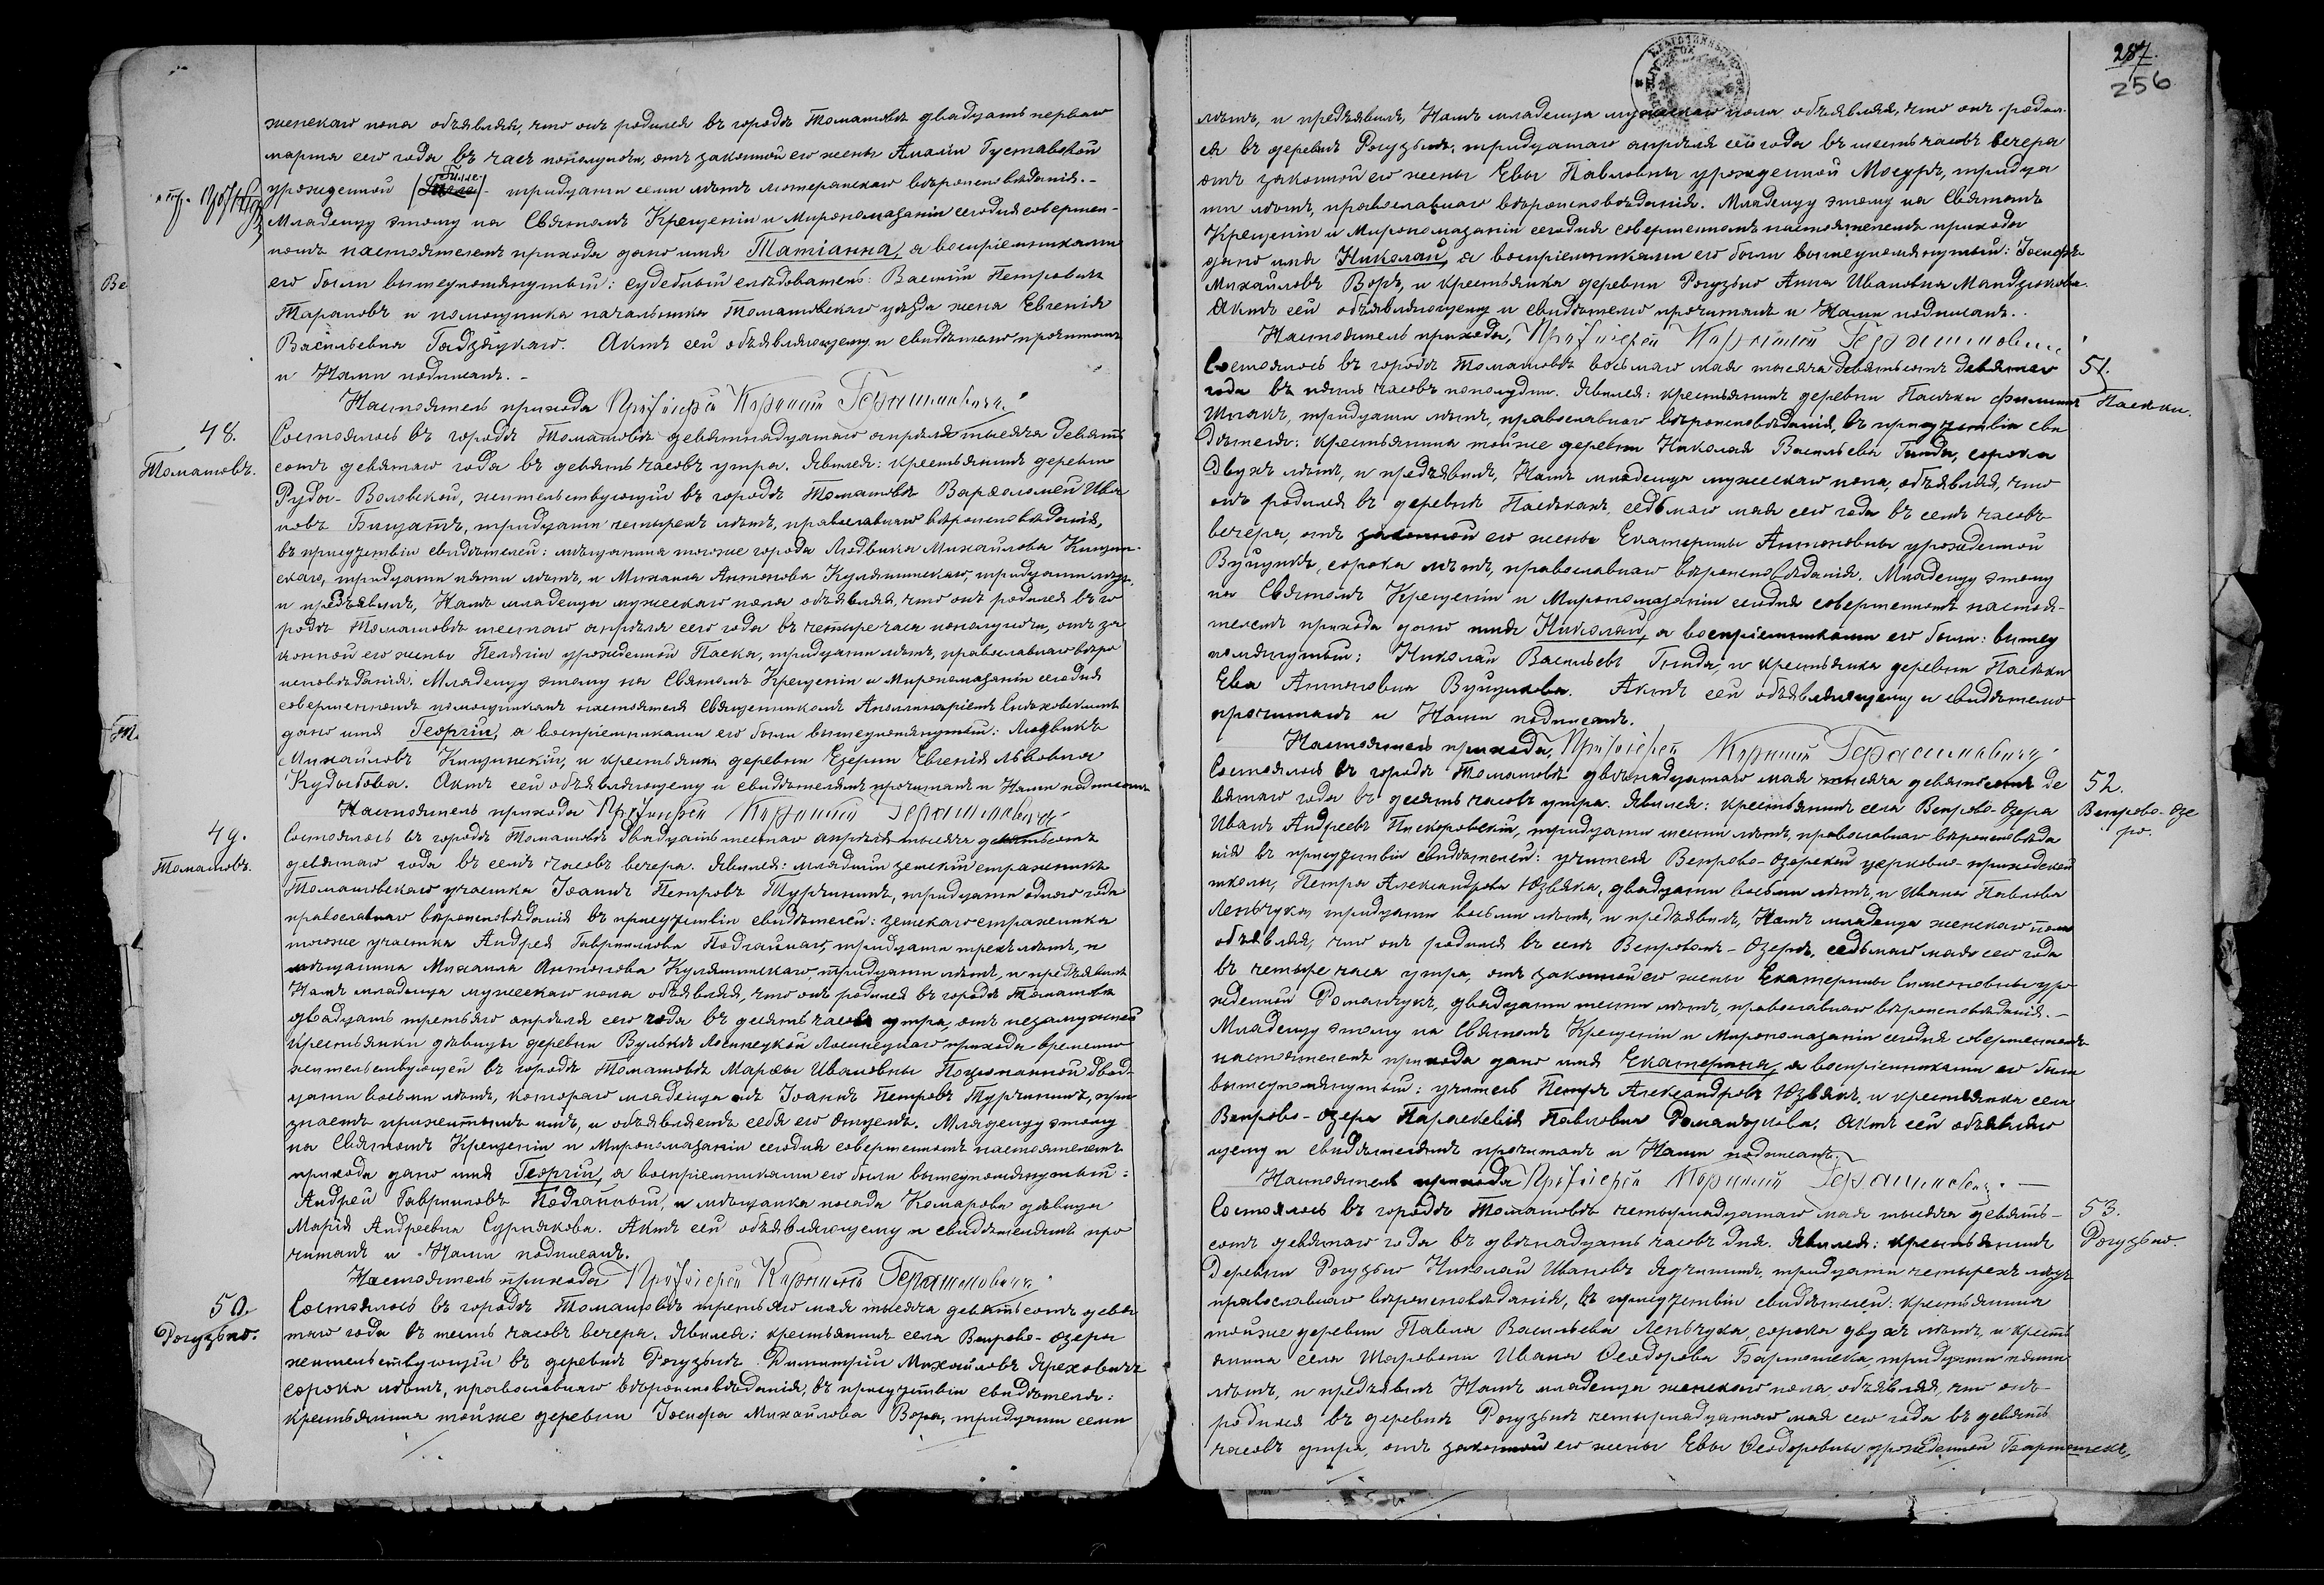 женскаго пола объявляя, что онъ родился въ городѣ Томашовѣ двадцать перваго
марта сего года въ часъ пополуночи, отъ законной его жены Амаліи Густавовой
урожденной Гилле тридцати семи лѣтъ лютеранскаго вѣроисповѣданія.-
Младенцу этому на Святомъ Крещеніи и Миропомазаніи сегодня совершен-
номъ настоятелемъ прихода дано имя Татіанна, а воспріемниками
его были вышеупомянутый: судебный слѣдователь: Василій Петровичъ
Тарановъ и помощника начальника Томашовскаго уѣзда жена Евгенія
Васильевна Гадзяцкаго. Актъ сей объявляющему и свидѣтелю прочитанъ
и Нами подписанъ.-
Настоятель прихода Протоіерей Корнилій Герашиновичъ
48.
Томашовъ.
Состоялось въ городѣ Томашовѣ девятнадцатаго апрѣля тысяча девять
сотъ девятаго года въ девять часовъ утра. Явился: крестьянинъ деревни
Руды-Воловской, жительствующій въ городѣ Томашовѣ Варѳоломей Ива
новъ тридцати четырехъ лѣтъ, православнаго вѣроисповѣданія,
въ присутствіи свидѣтелей: мѣщанина тогоже города Людвика Михайлова Кицин-
скаго, тридцати пяти лѣтъ, и Михаила Антонова Куляшинскаго, тридцати лѣтъ,
и предъявилъ, Намъ младенца мужескаго пола объявляя, что онъ родился въ го
родѣ Томашовѣ шестаго апрѣля сего года въ четыре часа пополуночи, отъ за
конной его жены Пелагіи урожденной Паска, тридцати лѣтъ, православнаго вѣро
исповѣданія. Младенцу этому на Святомъ Крещеніи и Миропомазаніи сегодня
совершенномъ помощникомъ настоятеля Священникомъ Аполлинаріемъ
дано имя Георгій, а воспріемниками его были вышеупомянутый: Людвикъ
Михайловъ Кицинскій, и крестьянка деревни Езерни Евгенія Львовна
Кудыбова. Актъ сей объявляющему и свидѣтелямъ прочитанъ и Нами подписанъ
Настоятель прихода Протоіерей Корнилій Герашиновичъ
49.
Томашовъ.
Состоялось въ городѣ Томашовѣ двадцать шестаго апрѣля тысяча девятьсотъ
девятаго года въ семь часовъ вечера. Явился: младшій земскій стражникъ
Томашовскаго участка Іоаннъ Петровъ Турчинъ, тридцати одного года
православнаго вѣроисповѣданія въ присутствіи свидѣтелей: земскаго стражника
тогоже участка Андрея Гавриилова Подгайнаго, тридцати трехъ лѣтъ, и
мѣщанина Михаила Антонова Куляшинскаго, тридцати лѣтъ, и предъявилъ
Намъ младенца мужескаго пола объявляя, что онъ родился въ городѣ Томашовѣ
двадцать третьяго апрѣля сего года въ десять часовъ утра, отъ незамужней
крестьянки дѣвицы деревни Вульки Лосинецкой Лосинецкаго прихода временно
жительствующей въ городѣ Томашовѣ Марѳы Ивановны двад-
цати восьми лѣтъ, котораго младенца онъ Іоаннъ Петровъ Турчинъ, при
знаетъ прижитымъ имъ, и объявляетъ себя его отцемъ. Младенцу этому
на Святомъ Крещеніи и Миропомазаніи сегодня совершенномъ настоятелемъ
прихода дано имя Георгій, а воспріемниками его были вышеупомянутый:
Андрей Гаврииловъ Подгайный, и мѣщанка посада Комарова дѣвица
Марія Андреевна Сурмякова. Актъ сей объявляющему и свидѣтелямъ про
читанъ и Нами подписанъ.
Настоятель прихода Протоіерей Корнилій Герашиновичъ
50.
Рогузьно.
Состоялось въ городѣ Томашовѣ третьяго мая тысяча девятьсотъ девя
таго года въ шесть часовъ вечера. Явился: крестьянинъ села Вепрово-Озера
жительствующій въ деревнѣ Рогузьнѣ Димитрій Михайловъ Яреховичъ
сорока лѣтъ, православнаго вѣроисповѣданія, въ присутствіи свидѣтеля:
крестьянина тойже деревни Іосифа Михайлова Вора, тридцати семи
287.
256
лѣтъ, и предъявилъ, Намъ младенца мужескаго пола объявляя, что онъ родил-
ся въ деревнѣ Рогузьнѣ, тридцатаго апрѣля сего года въ шесть часовъ вечера
отъ законной его жены Евы Павловны урожденной Мосуръ, тридца
ти лѣтъ, православнаго вѣроисповѣданія. Младенцу этому на Святомъ
Крещеніи и Миропомазаніи сегодня совершенномъ настоятелемъ прихода
дано имя Николай, а воспріемниками его были вышеупомянутый: Іосифъ
Михайловъ Воръ, и крестьянка деревни Рогузьно Анна Ивановна Мандзюкова.
Актъ сей объявляющему и свидѣтелю прочитанъ и Нами подписанъ.
Настоятель прихода, Протоіерей Корнилій Герашиновичъ
51.
Пасѣки.
Состоялось въ городѣ Томашовѣ восьмаго мая тысяча девятьсотъ девятаго
года въ пять часовъ пополудни. Явился: крестьянинъ деревни Пасѣки Филиппъ
Шпакъ, тридцати лѣтъ, православнаго вѣроисповѣданія, въ присутствіи сви
дѣтеля: крестьянина тойже деревни Николая Васильева Гинда, сорока
двухъ лѣтъ, и предъявилъ, Намъ младенца мужескаго пола, объявляя, что
онъ родился въ деревнѣ Пасѣкахъ, седьмаго мая сего года въ семь часовъ
вечера, отъ законной его жены Екатерины Антоновны урожденной
Вуйцикъ, сорока лѣтъ, православнаго вѣроисповѣданія. Младенцу этому
на Святомъ Крещеніи и Миропомазаніи сегодня совершенномъ настоя-
телемъ прихода дано имя Николай, а воспріемниками его были: вышеу
помянутый: Николай Васильевъ Гинда, и крестьянка деревни Пасѣки
Ева Антоновна Вуйцикова. Актъ сей объявляющему и свидѣтелю
прочитанъ и Нами подписанъ.
Настоятель прихода, Протоіерей Корнилій Герашиновичъ
52.
Вепрово-Озе
ро.
Состоялось въ городѣ Томашовѣ двѣнадцатаго мая тысяча девятьсотъ де
вятаго года въ десять часовъ утра. Явился: крестьянинъ села Вепрово-Озера
Иванъ Андреевъ Пискоровскій, тридцати шести лѣтъ, православнаго вѣроисповѣда
нія въ присутствіи свидѣтелей: учителя Вепрово-Озерской церковно-приходской
школы, Петра Александрова Юзвяка, двадцати восьми лѣтъ, и Ивана Павлова
Леньчука, тридцати восьми лѣтъ, и предъявилъ, Намъ младенца женскаго пола
объявляя, что онъ родился въ селѣ Вепровомъ-Озерѣ, седьмаго мая сего года
въ четыре часа утра, отъ законной его жены Екатерины Симеоновны уро
жденной Романчукъ, двадцати шести лѣтъ, православнаго вѣроисповѣданія.-
Младенцу этому на Святомъ Крещеніи и Миропомазаніи сегодня совершенномъ
настоятелемъ прихода дано имя Екатерина, а воспріемниками его были
вышеупомянутый: учитель Петръ Александровъ Юзвякъ, и крестьянка села
Вепрово-Озера Параскевія Павловна Романчукова. Актъ сей объявляю
щему и свидѣтелямъ прочитанъ и Нами подписанъ.
Настоятель прихода Протоіерей Корнилій Герашиновичъ.
53.
Рогузьно.
Состоялось въ городѣ Томашовѣ четырнадцатаго мая тысяча девять-
сотъ девятаго года въ двѣнадцать часовъ дня. Явился: крестьянинъ
деревни Рогузьно Николай Ивановъ Ячининъ, тридцати четырехъ лѣтъ
православнаго вѣроисповѣданія, въ присутствіи свидѣтелей: крестьянина
тойже деревни Павла Васильева Леньчука, сорока двухъ лѣтъ, и кресть
янина села Шароволи Ивана Ѳеодорова Бартошека, тридцати пяти
лѣтъ, и предъявилъ Намъ младенца женскаго пола, объявляя, что онъ
родился въ деревнѣ Рогузьнѣ четырнадцатаго мая сего года въ девять
часовъ утра, отъ законной его жены Евы Ѳеодоровны урожденной Бартошекъ,